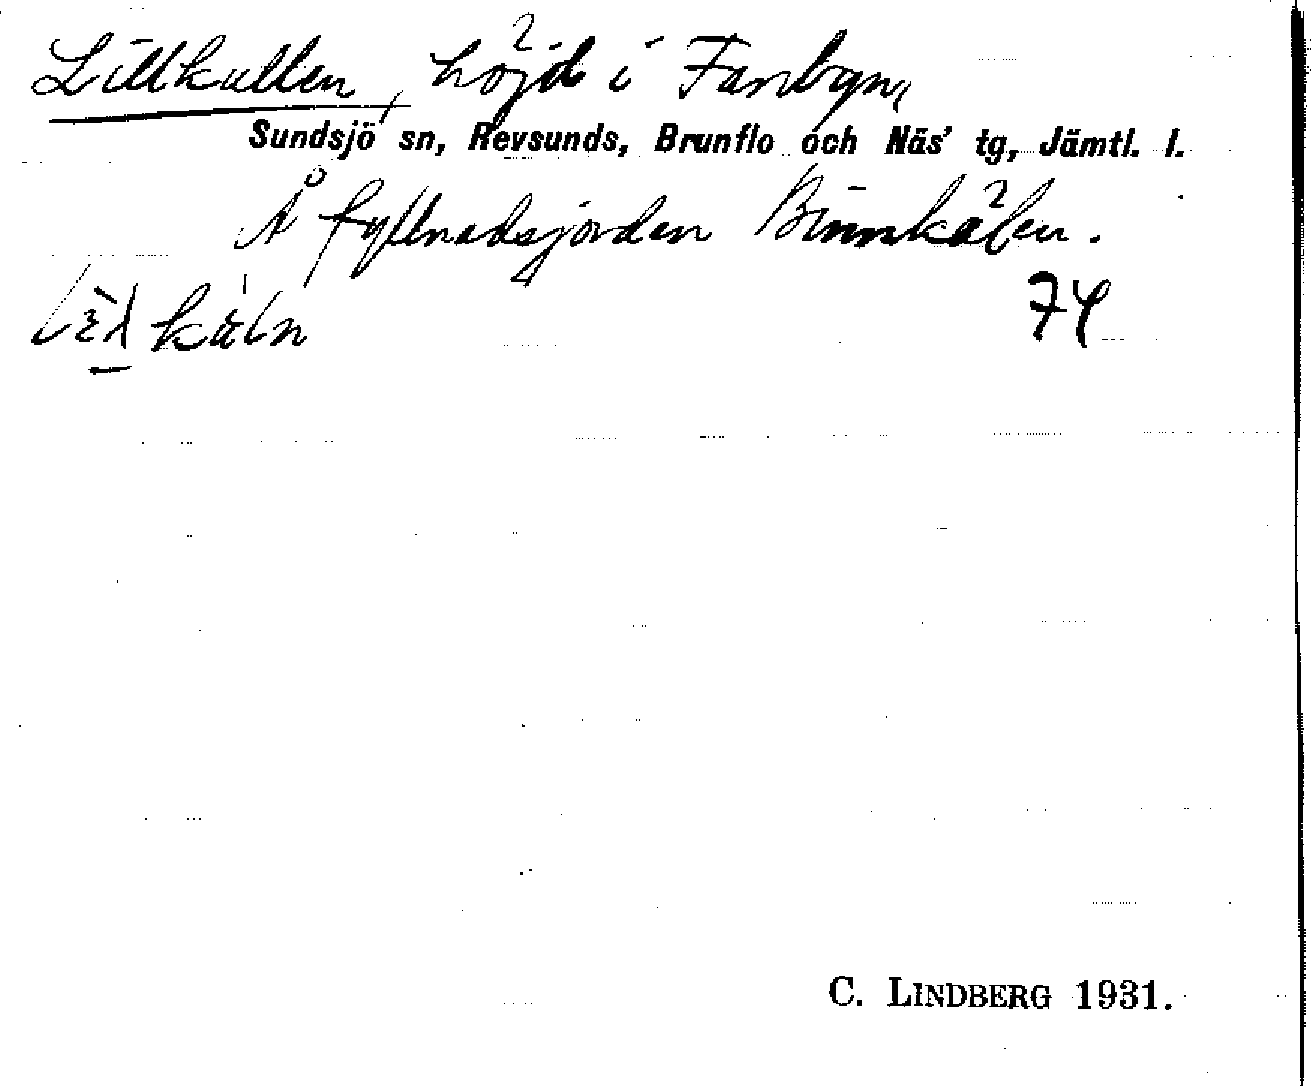 Lillkullen, höjd i Fanbyn,
Sundsjö sn, Revsunds, Brunflo och Näs' tg, Jämtl. l.
Å fyllnadsjorden Binnkälen.
74
C. LINDBERG 1931.